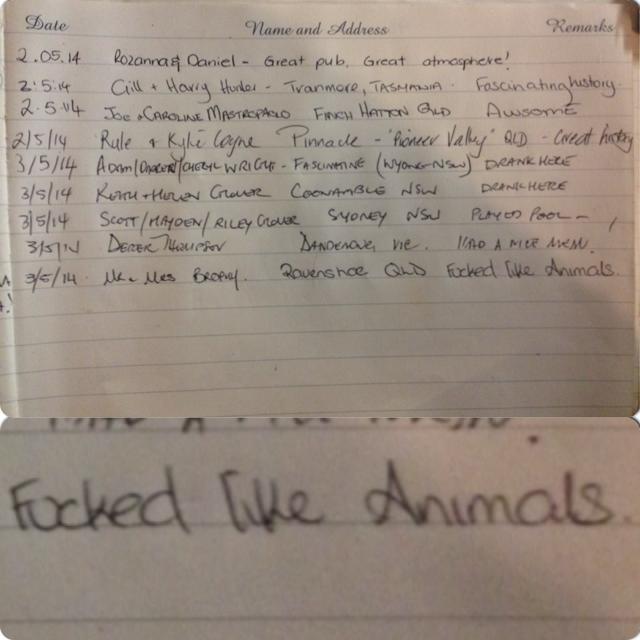 Date Name and Address Remarks
2.05.14 Rozanna & Daniel - Great pub, Great atmosphere!
2.5.14 Gill + Harry Hunter - Tranmore, TASMANIA. Fascinating history.
2.5.14 JOE & CAROLINE MASTROPAOLO FINCH HATTON QLD AWSOME
2/5/14 Rule & Kylie Pinnacle - "Pioneer Valley" QLD - Great history
3/5/14 ADAM/ /CHERYL WRIGHT - FASCINATINE (WYONG-NSW) DRANK HERE
3/5/14 KEITH + HELEN GLOVER COONAMBLE NSW DRANK HERE
3/5/14 SCOTT/HAYDEN/RILEY GLOVER SYDNEY NSW PLAYED POOL -
3/5/14 DEREK THOMPSON DANDENONG, VIC. HAD A NICE MEAL.
3/5/14 Mr & Mrs BROPHY. Ravenshoe QLD Fucked like Animals.
Fucked like Animals.